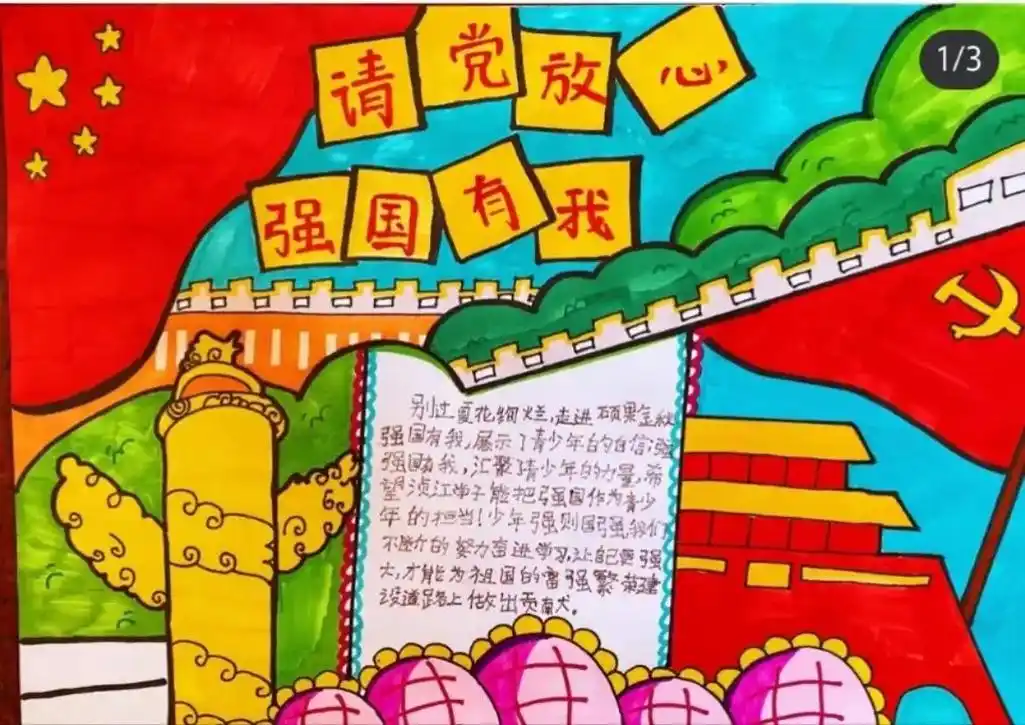 1/3
请党放心
强国有我
别过夏花绚烂,走进硕果金秋
强国有我,展示了青少年的自信,强
强国有我,汇聚青少年的力量,希
望浈江学子能把强国作为青少
年的担当!少年强则国强,我们
不断的努力奋进学习,让自己要强
大,才能为祖国的富强繁荣建
设道路上做出贡献。